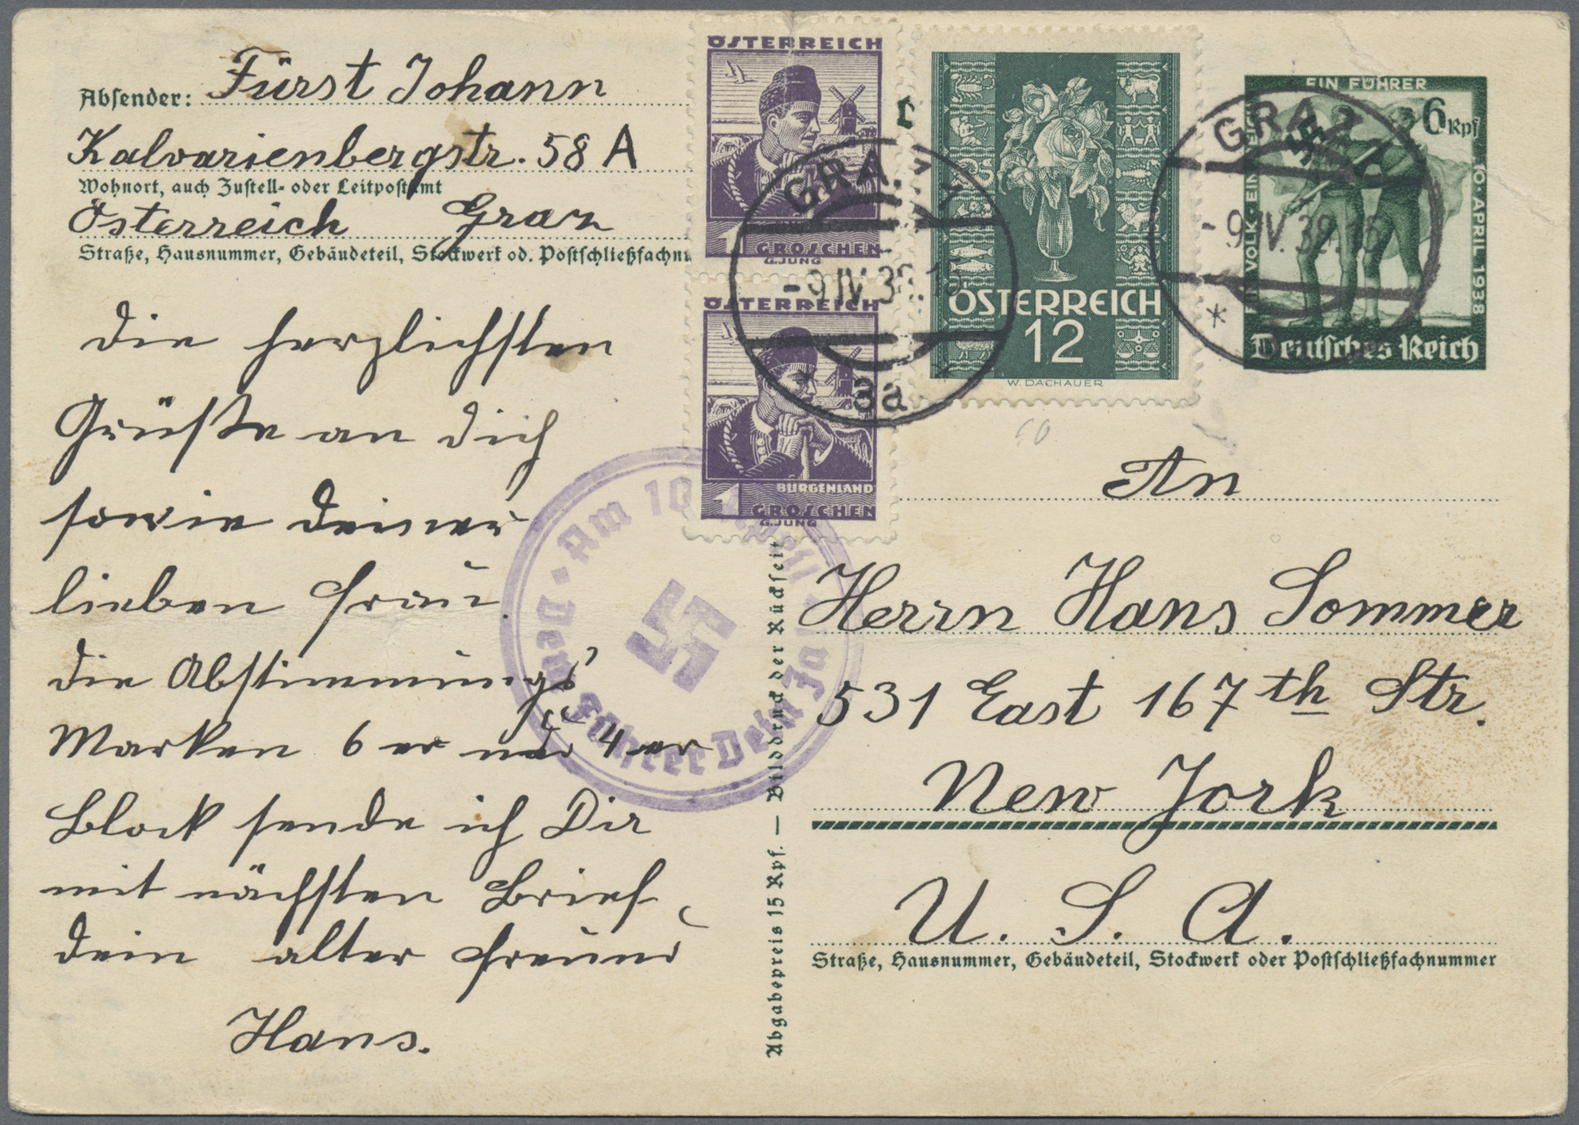 Absender: Fürst Johann
Kalvarienbergstr. 58 A
Wohnort, auch Zustell- oder Leitpostamt
Österreich Graz
Straße, Hausnummer, Gebäudeteil, Stockwerk od. Postschließfachnu
die herzlichsten
Grüße an dich
sowie deiner
lieben Frau.
die Abstimmungs'
Marken 6 er und 4 er
Block sende ich Dir
mit nächsten Brief,
dein alter Freund
Hans.
ÖSTERREICH
1 GROSCHEN
G.JUNG
ÖSTERREICH
BURGENLAND
1 GROSCHEN
G.JUNG
ÖSTERREICH
12
W. DACHAUER
GRAZ 1
-9.IV.38.
3a
EIN FÜHRER
EIN VOLK EIN
10. APRIL 1938
6 Rpf
Deutsches Reich
GRAZ 1
-9.IV.38.
*
Am 10. April
Dem Führer Dein Ja
Abgabepreis 15 Rpf. — Bilddruck der Rückseite
An
Herrn Hans Sommer
531 East 167th Str.
New York
U. S. A.
Straße, Hausnummer, Gebäudeteil, Stockwerk oder Postschließfachnummer